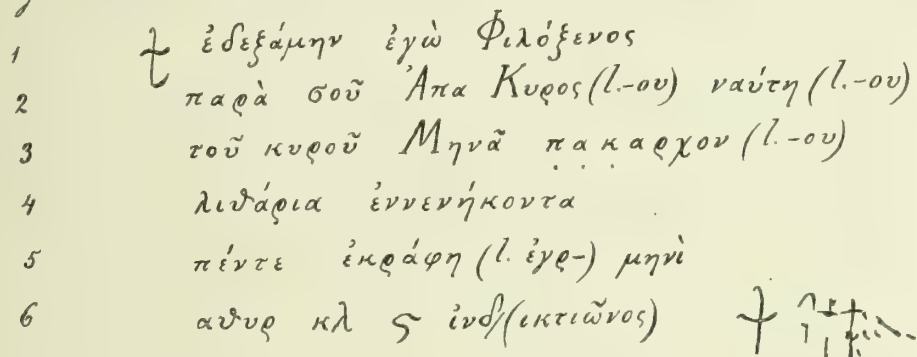 1 ⳨ ἐδεξάμην ἐγὼ Φιλόξενος
2 παρὰ σοῦ Ἀπα Κυρος (l. -ου) ναύτη (l. -ου)
3 τοῦ κυροῦ Μηνᾶ π̣ạκ̣αρχον (l. -ου)
4 λιθάρια ἐννενήκοντα
5 πέντε ἐκράφη (l. ἐγρ-) μηνὶ
6 αθυρ κλ ϛ ἰνδ/(ικτιῶνος)